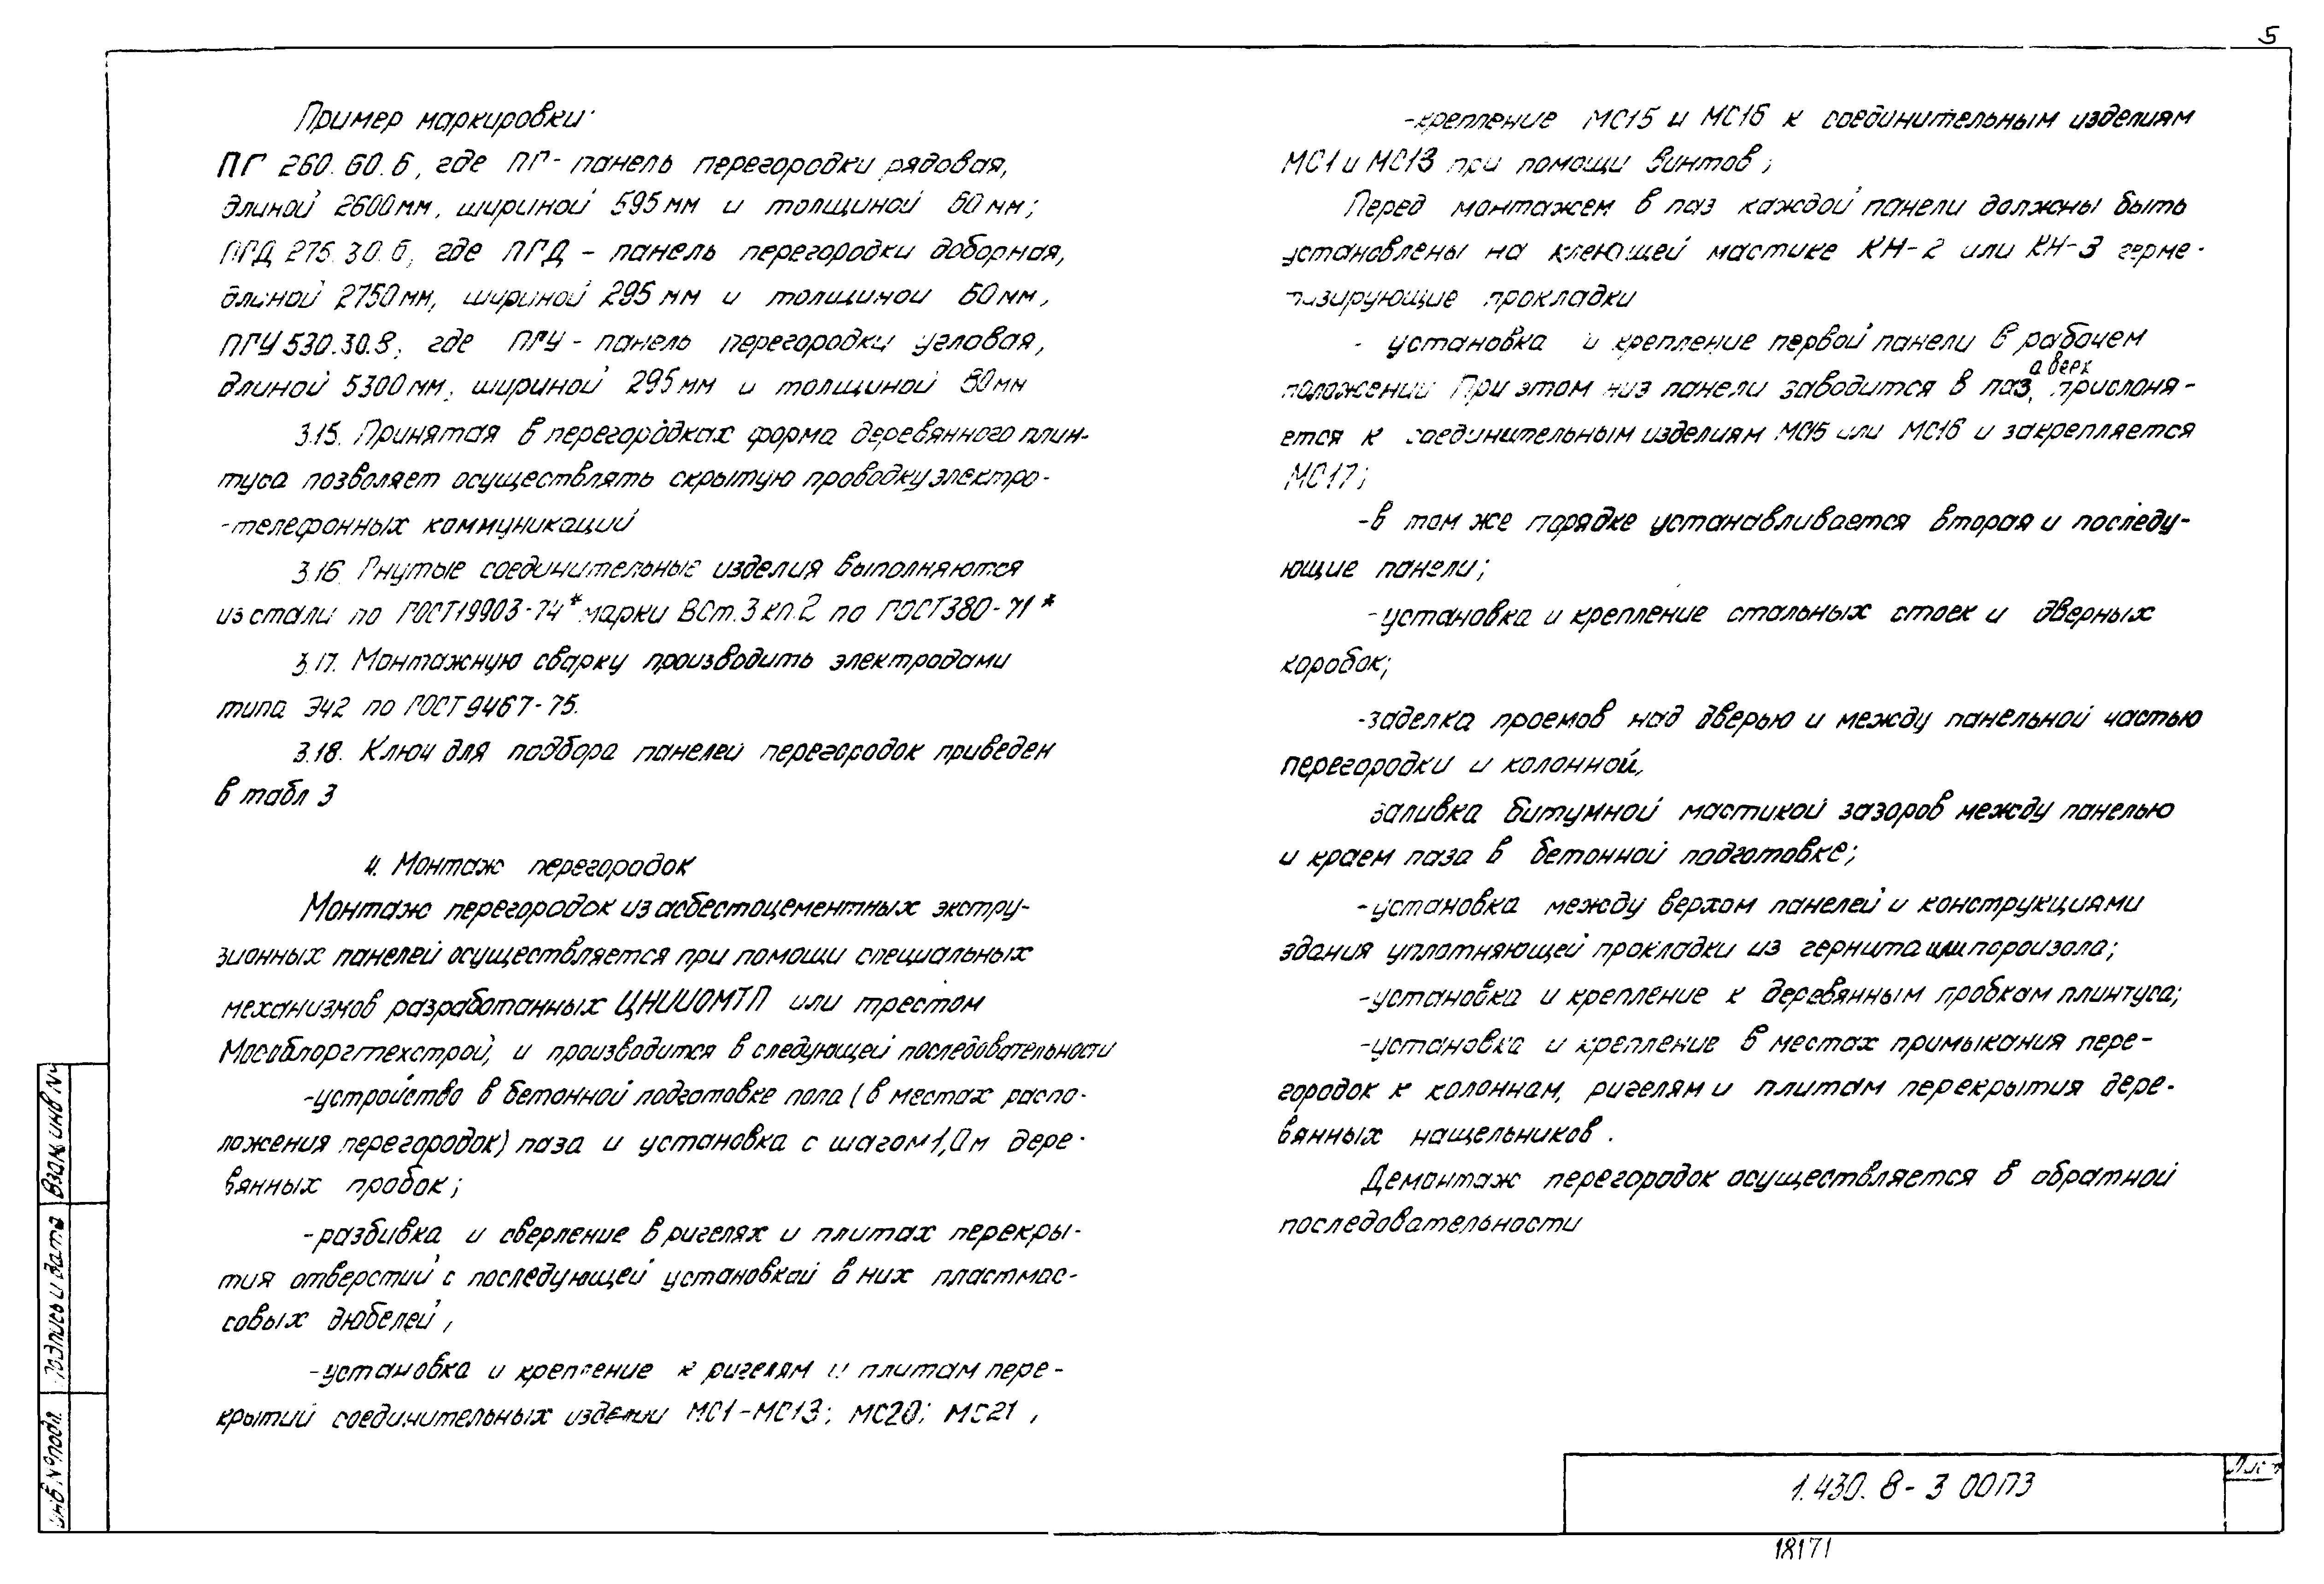 5
Пример маркировки:
ПГ 260.60.6, где ПГ- панель перегородки рядовая,
длиной 2600мм, шириной 595мм и толщиной 60мм;
ПГД 275.30.6, где ПГД - панель перегородки доборная,
длиной 2750мм, шириной 295мм и толщиной 60мм,
ПГУ 530.30.8, где ПГУ - панель перегородки угловая,
длиной 5300мм, шириной 295мм и толщиной 80мм
3.15. Принятая в перегородках форма деревянного плин-
туса позволяет осуществлять скрытую проводку электро-
-телефонных коммуникаций
3.16. Гнутые соединительные изделия выполняются
из стали по ГОСТ19903-74* марки ВСт.3кп.2 по ГОСТ380-71*
3.17. Монтажную сварку производить электродами
типа Э42 по ГОСТ9467-75.
3.18. Ключ для подбора панелей перегородок приведен
в табл 3
4. Монтаж перегородок
Монтаж перегородок из асбестоцементных экстру-
зионных панелей осуществляется при помощи специальных
механизмов разработанных ЦНИИОМТП или трестом
Мособлоргтехстрой, и производится в следующей последовательности
-устройство в бетонной подготовке пола (в местах распо-
ложения перегородок) паза и установка с шагом 1,0м дере-
вянных пробок;
-разбивка и сверление в ригелях и плитах перекры-
тия отверстий с последующей установкой в них пластмас-
совых дюбелей,
-установка и крепление к ригелям и плитам пере-
крытий соединительных изделий МС1-МС13; МС20; МС21,
-крепление МС15 и МС16 к соединительным изделиям
МС1 и МС13 при помощи винтов;
Перед монтажем в паз каждой панели должны быть
установлены на клеющей мастике КН-2 или КН-3 герме-
тизирующие прокладки
- установка и крепление первой панели в рабочем
а верх
положении При этом низ панели заводится в паз, прислоня-
ется к соединительным изделиям МС15 или МС16 и закрепляется
МС17;
-в том же порядке устанавливается вторая и последу-
ющие панели;
-установка и крепление стальных стоек и дверных
коробок;
-заделка проемов над дверью и между панельной частью
перегородки и колонной,
заливка битумной мастикой зазоров между панелью
и краем паза в бетонной подготовке;
-установка между верхом панелей и конструкциями
здания уплотняющей прокладки из гернита или пороизола;
-установка и крепление к деревянным пробкам плинтуса;
-установка и крепление в местах примыкания пере-
городок к колоннам, ригелям и плитам перекрытия дере-
вянных нащельников.
Демонтаж перегородок осуществляется в обратной
последовательности
Взам инв №
Подпись и дата
Инв.№подл.
1.430.8-3 00ПЗ
Лист
18171